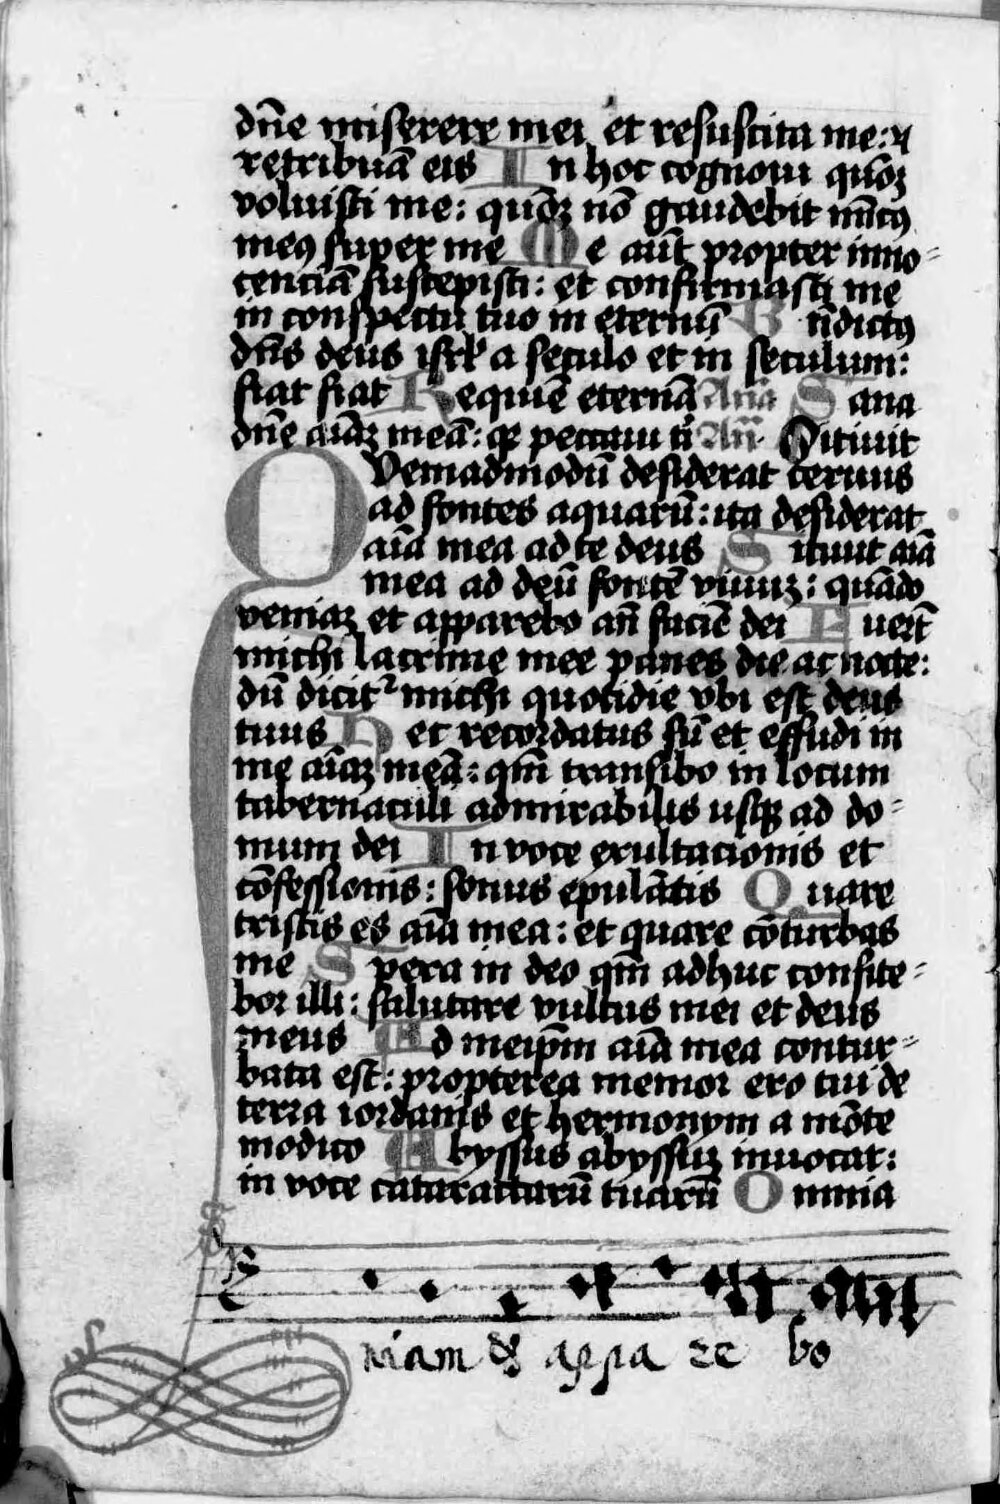 dn̄e miserere mei et resuscita me: ⁊
retribuā eis In hoc cognoui quōꝫ
voluisti me: quōꝫ nō gaudebit inīcꝰ
meꝰ super me Me aūt propter inno⸗
cenciā suscepisti: et confirmasti me
in conspectu tuo in eternū Bn̄dictꝰ
dn̄s deus isrl̄ a seculo et in seculum:
fiat fiat Requiē eternā Añā Sana
dn̄e aīaꝫ meā: qꝛ peccaui ti Añ Sitiuit
Quemadmodū desiderat ceruus
ad fontes aquarū: ita desiderat
aīa mea ad te deus Sitiuit aīa
mea ad deū fontē viuuꝫ: quādo
veniaꝫ et apparebo an̄ faciē dei Fuer̄t
michi lacrime mee panes die ac nocte:
dū dicit᷑ michi quotidie vbi est deus
tuus Hec recordatus sū et effudi in
me aīaꝫ meā: qm̄ transibo in locum
tabernaculi admirabilis usqꝫ ad do⸗
mum dei In voce exultacionis et
cōfessionis: sonus epulātis Quare
tristis es aīa mea: et quare cōturbas
me Spera in deo qm̄ adhuc confite⸗
bor illi: salutare vultus mei et deus
meus Ad meip̄m aīa mea contur⸗
bata est: propterea memor ero tui de
terra iordanis et hermonym a mōte
modico Abyssus abyssuꝫ inuocat:
in voce cataractarū tuarū Omnia
niam & appa re bo